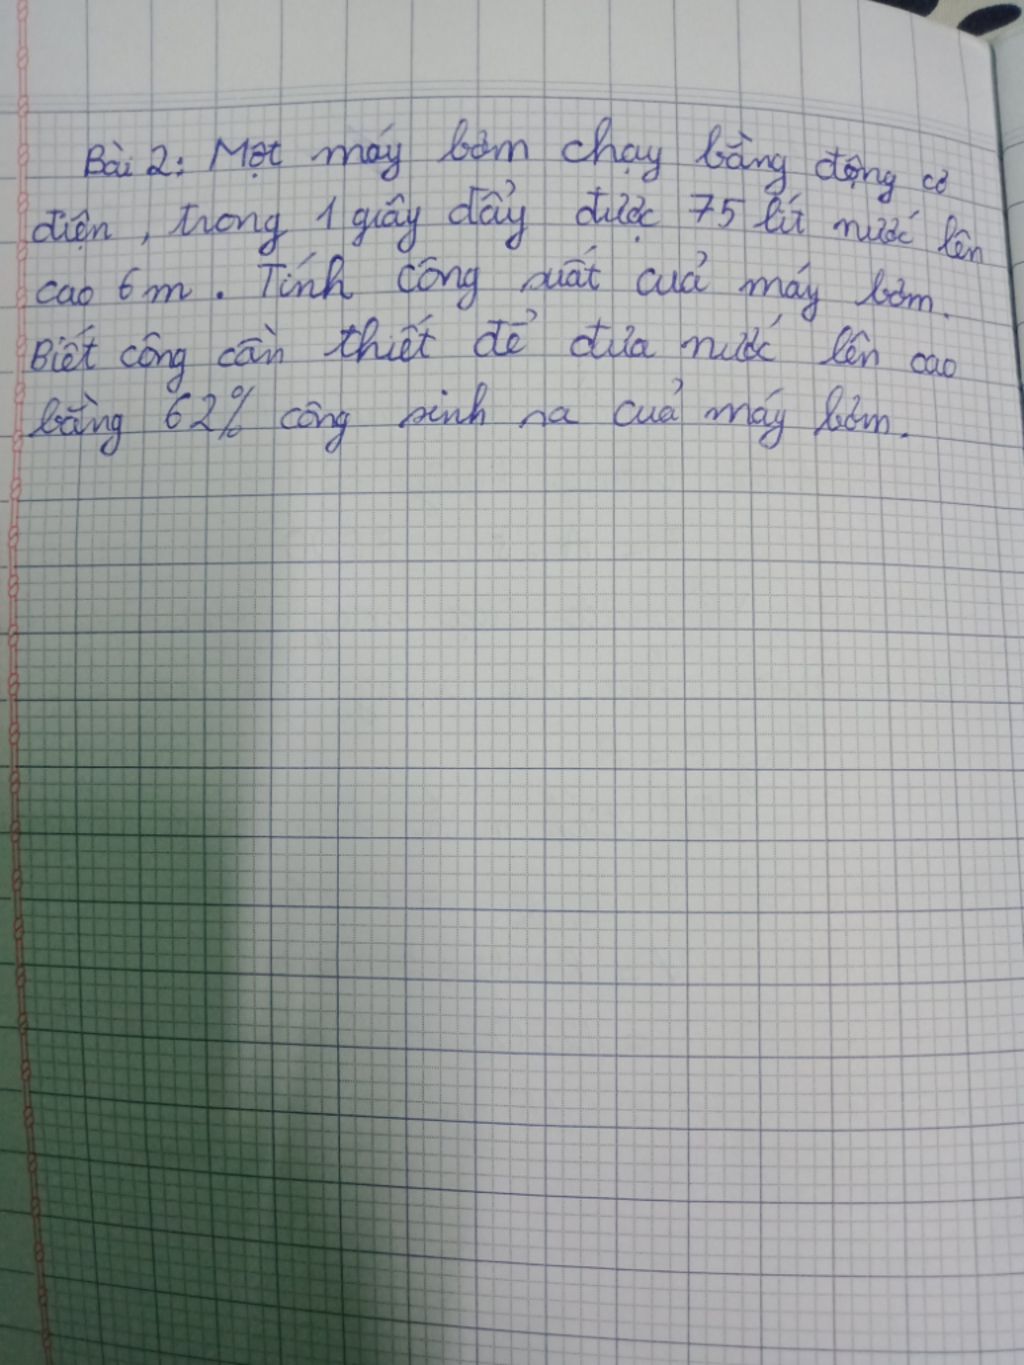 Bài 2: Một máy bơm chạy bằng động cơ
điện, trong 1 giây đẩy được 75 lít nước lên
cao 6m. Tính công suất cuả máy bơm.
Biết công cần thiết để đưa nước lên cao
bằng 62% công sinh ra cuả máy bơm.